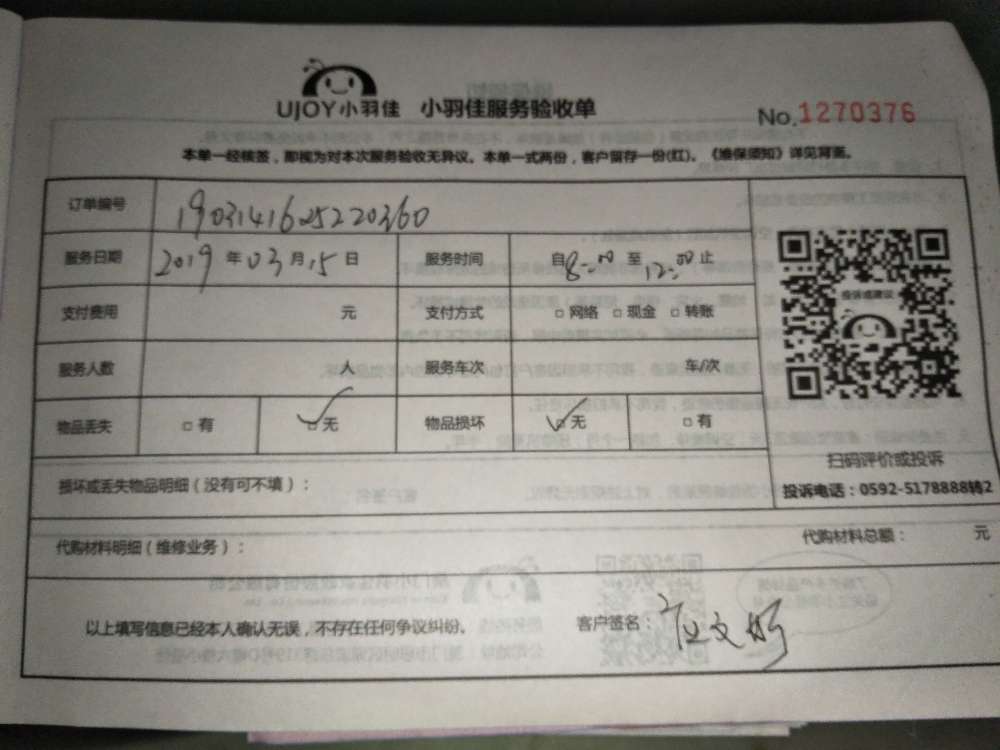 UJOY小羽佳 小羽佳服务验收单
No.1270376
本单一经核签，即视为对本次服务验收无异议。本单一式两份，客户留存一份(红)。《维保须知》详见背面。
订单编号 190314162522 0360
服务日期 2019 年 03 月 15 日 服务时间 自 8:00 至 12:00 止
支付费用 元 支付方式 □ 网络 □ 现金 □ 转账
服务人数 人 服务车次 车/次
物品丢失 □ 有 ☑ 无 物品损坏 ☑ 无 □ 有
投诉或建议
扫码评价或投诉
损坏或丢失物品明细（没有可不填）：
投诉电话：0592-5178888转2
代购材料明细（维修业务）： 代购材料总额： 元
以上填写信息已经本人确认无误，不存在任何争议纠纷。 客户签名：